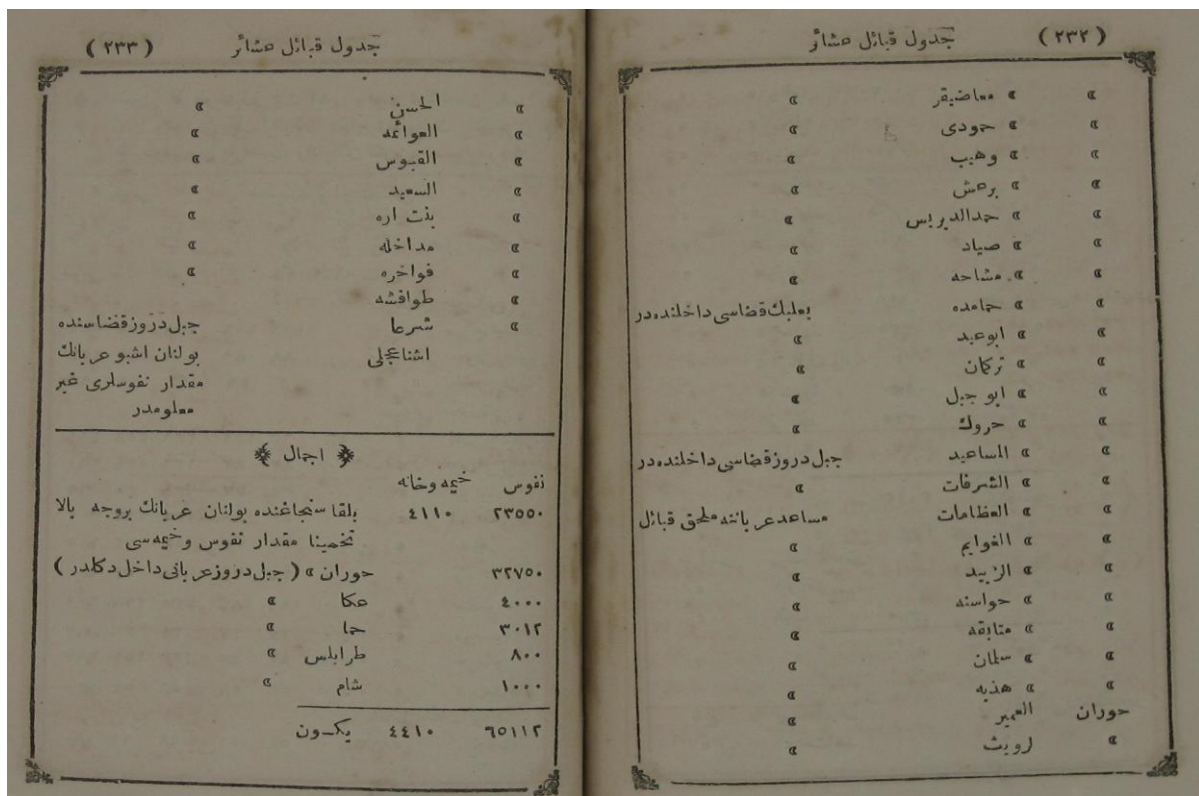 ( ٢٣٢ ) جدول قبائل عشائر
» » معاضيقر »
» » حمودى »
» » وهيب »
» » برعش »
» » حمدالدبربس »
» » صياد »
» » مشاحه »
» » حمامده بعلبك قضاسى داخلنده در
» » ابوعيد »
» » تركان »
» » ابو جبل »
» » حروك »
» » المساعيد جبل دروز قضاسى داخلنده در
» » الشرفات »
» » العظامات مساعد عرباننه ملحق قبائل
» » الغوايم »
» » الزبيد »
» » حواسنه »
» » متابقه »
» » سلمان »
» » هذيه »
حوران العمير »
» لرويث »
جدول قبائل عشائر ( ٢٣٣ )
» الحسن »
» العوائمه »
» القبوس »
» السعيد »
» بنت اره »
» مداخله »
» فواخره »
» طوافشه
» شرعا جبل دروز قضاسنده
اشناعجلى بولنان اشبو عربانك
مقدار نفوسلرى غير
معلومدر
اجمال
نفوس خيمه وخانه
٢٣٥٥٠ ٤١١٠ بلقا سنجاغنده بولنان عربانك بروجه بالا
تخمينا مقدار نفوس وخيمه سى
٣٢٧٥٠ حوران » ( جبل دروز عربانى داخل دكلدر )
٤٠٠٠ عكا »
٣٠١٢ حما »
٨٠٠ طرابلس »
١٠٠٠ شام »
٦٥١١٢ ٤٤١٠ يكـون